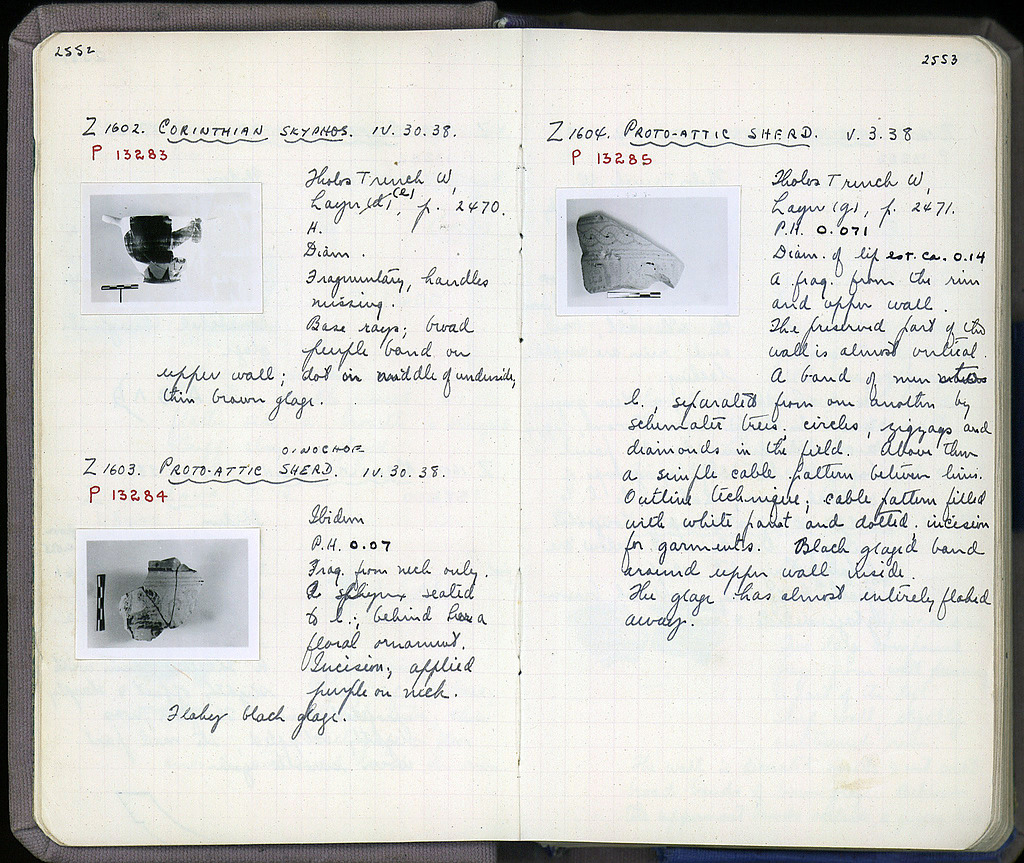 2552
Z 1602. CORINTHIAN SKYPHOS. IV.30.38.
P 13283
Tholos Trench W,
Layer (d), (e) p. 2470.
H.
Diam.
Fragmentary, handles
missing.
Base rays; broad
purple band on
upper wall; dot in middle of underside;
thin brown glaze.
OINOCHOE
Z 1603. PROTO-ATTIC SHERD. IV.30.38.
P 13284
Ibidem
P.H. 0.07
Frag. from neck only.
sphynx seated
to l.; behind her a
floral ornament.
Incision; applied
purple on neck.
Flakey black glaze.
2553
Z 1604. PROTO-ATTIC SHERD. V.3.38
P 13285
Tholos Trench W,
Layer (g), p. 2471.
P.H. 0.071
Diam. of lip est. ca. 0.14
A frag. from the rim
and upper wall.
The preserved part of the
wall is almost vertical.
A band of men
l., separated from one another by
schematic trees. circles, zigzags and
diamonds in the field. Above them
a simple cable pattern between lines.
Outline technique; cable pattern filled
with white paint and dotted; incision
for garments. Black glazed band
around upper wall inside.
The glaze has almost entirely flaked
away.